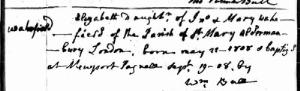 Wakefield
Elizabeth Daught^r of Jn^o & Mary Wake-
field of the Parish of S^t Mary Alderman-
bury London, born may 21 - 1808 & baptiz^d
at Newport Pagnell Sept^r 19 - 08, by
W^m Bull